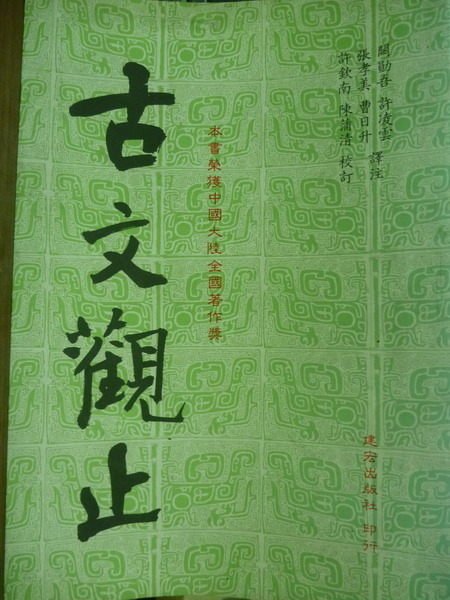 闕勛吾 許凌雲 譯注
張孝美 曹日升
許欽南 陳蒲清 校訂
本書榮獲中國大陸全國著作獎
古文觀止
建宏出版社 印行